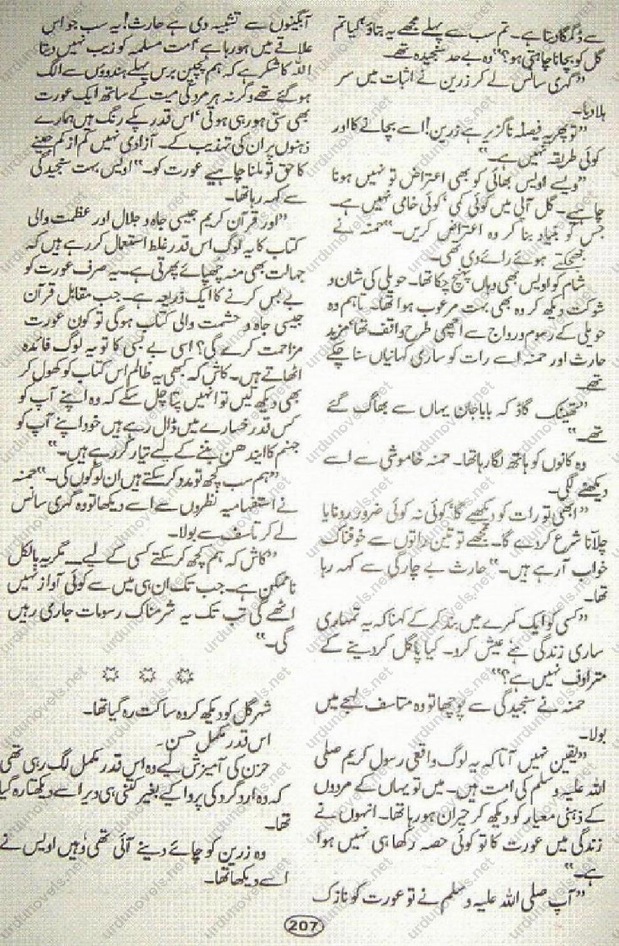 سے ڈگمگا دیتا ہے۔ تم سب سے پہلے مجھے یہ بتاؤ کیا تم
گل کو بچانا چاہتی ہو؟“ وہ بے حد سنجیدہ تھے۔
گہری سانس لے کر زرین نے اثبات میں سر
ہلا دیا۔
”تو پھر یہ فیصلہ ناگزیر ہے زرین! اسے بچانے کا اور
کوئی طریقہ نہیں ہے۔“
”ویسے اویس بھائی کو بھی اعتراض تو نہیں ہونا
چاہیے۔ گل آپی میں کوئی کمی‘ کوئی خامی نہیں ہے۔
جس کو بنیاد بنا کر وہ اعتراض کریں۔“ حمنہ نے
جھجکتے ہوئے رائے دی تھی۔
شام کو اویس بھی وہاں پہنچ چکا تھا۔ حویلی کی شان و
شوکت دیکھ کر وہ بھی بہت مرعوب ہوا تھا۔ تاہم وہ
حویلی کے رسوم و رواج سے اچھی طرح واقف تھا‘ مزید
حارث اور حمنہ اسے رات کو ساری کہانیاں سنا چکے
تھے۔
”تھینک گاڈ کہ باباجان یہاں سے بھاگ گئے
تھے۔“
وہ کانوں کو ہاتھ لگا رہا تھا۔ حمنہ خاموشی سے اسے
دیکھنے لگی۔
”ابھی تو رات کو دیکھیے گا‘ کوئی نہ کوئی ضرور رونا یا
چلانا شروع کر دے گا۔ مجھے تو تین راتوں سے خوفناک
خواب آ رہے ہیں۔“ حارث بے چارگی سے کہہ رہا
تھا۔
”کسی کو ایک کمرے میں بند کر کے کہنا کہ یہ تمہاری
ساری زندگی ہے‘ عیش کرو۔ کیا پاگل کر دینے کے
مترادف نہیں ہے؟“
حمنہ نے سنجیدگی سے پوچھا تو وہ متاسف لہجے میں
بولا۔
”یقین نہیں آتا کہ یہ لوگ واقعی رسول کریم صلی
اللہ علیہ وسلم کی امت ہیں۔ میں تو یہاں کے مردوں
کے ذہنی معیار کو دیکھ کر حیران ہو رہا تھا۔ انہوں نے
زندگی میں عورت کا تو کوئی حصہ رکھا ہی نہیں ہوا
ہے۔“
”آپ صلی اللہ علیہ وسلم نے تو عورت کو نازک
آبگینوں سے تشبیہ دی ہے حارث! یہ سب جو اس
علاقے میں ہو رہا ہے‘ امت مسلمہ کو زیب نہیں دیتا
اللہ کا شکر ہے کہ ہم پچپن برس پہلے ہندوؤں سے الگ
ہو گئے تھے وگرنہ ہر مرد کی میت کے ساتھ ایک عورت
بھی ستی ہو رہی ہوتی‘ اس قدر پکے رنگ ہیں ہمارے
ذہنوں پر ان کی تہذیب کے۔ آزادی نہیں کم از کم جینے
کا حق تو ملنا چاہیے عورت کو۔“ اویس بہت سنجیدگی
سے کہہ رہا تھا۔
”اور قرآن کریم جیسی جاہ و جلال اور عظمت والی
کتاب کا یہ لوگ اس قدر غلط استعمال کر رہے ہیں کہ
جہالت بھی منہ چھپائے پھرتی ہے۔ یہ صرف عورت کو
بے بس کرنے کا ایک ذریعہ ہے۔ جب مقابل قرآن
جیسی جاہ و حشمت والی کتاب ہو گی تو کون عورت
مزاحمت کرے گی؟ اسی بے بسی کا تو یہ لوگ فائدہ
اٹھاتے ہیں۔ کاش کہ کبھی یہ ظالم اس کتاب کو کھول کر
بھی دیکھ لیں تو انہیں پتا چل سکے کہ وہ اپنے آپ کو
کس قدر خسارے میں ڈال رہے ہیں خود اپنے آپ کو
جہنم کا ایندھن بننے کے لیے تیار کر رہے ہیں۔“
”ہم سب کچھ تو مدد کر سکتے ہیں ان لوگوں کی۔“ حمنہ
نے استفہامیہ نظروں سے اسے دیکھا تو وہ گہری سانس
لے کر تاسف سے بولا۔
”کاش کہ ہم کچھ کر سکتے کسی کے لیے۔ مگر یہ بالکل
ناممکن ہے۔ جب تک ان ہی میں سے کوئی آواز نہیں
اٹھے گی تب تک یہ شرمناک رسومات جاری رہیں
گی۔“
شہر گل کو دیکھ کر وہ ساکت رہ گیا تھا۔
اس قدر مکمل حسن۔
حزن کی آمیزش لیے وہ اس قدر مکمل لگ رہی تھی
کہ وہ ارد گرد کی پروا کیے بغیر کتنی ہی دیر اسے دیکھتا رہ گیا
تھا۔
وہ زرین کو چائے دینے آئی تھی وہیں اویس نے
اسے دیکھا تھا۔
207
urdunovels.net